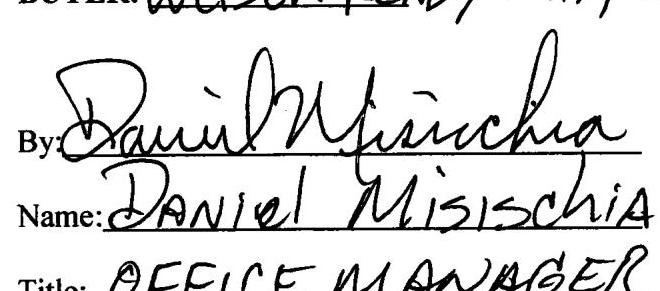 BUYER:
By: Daniel Misischia
Name: DANIEL MISISCHIA
Title: OFFICE MANAGER